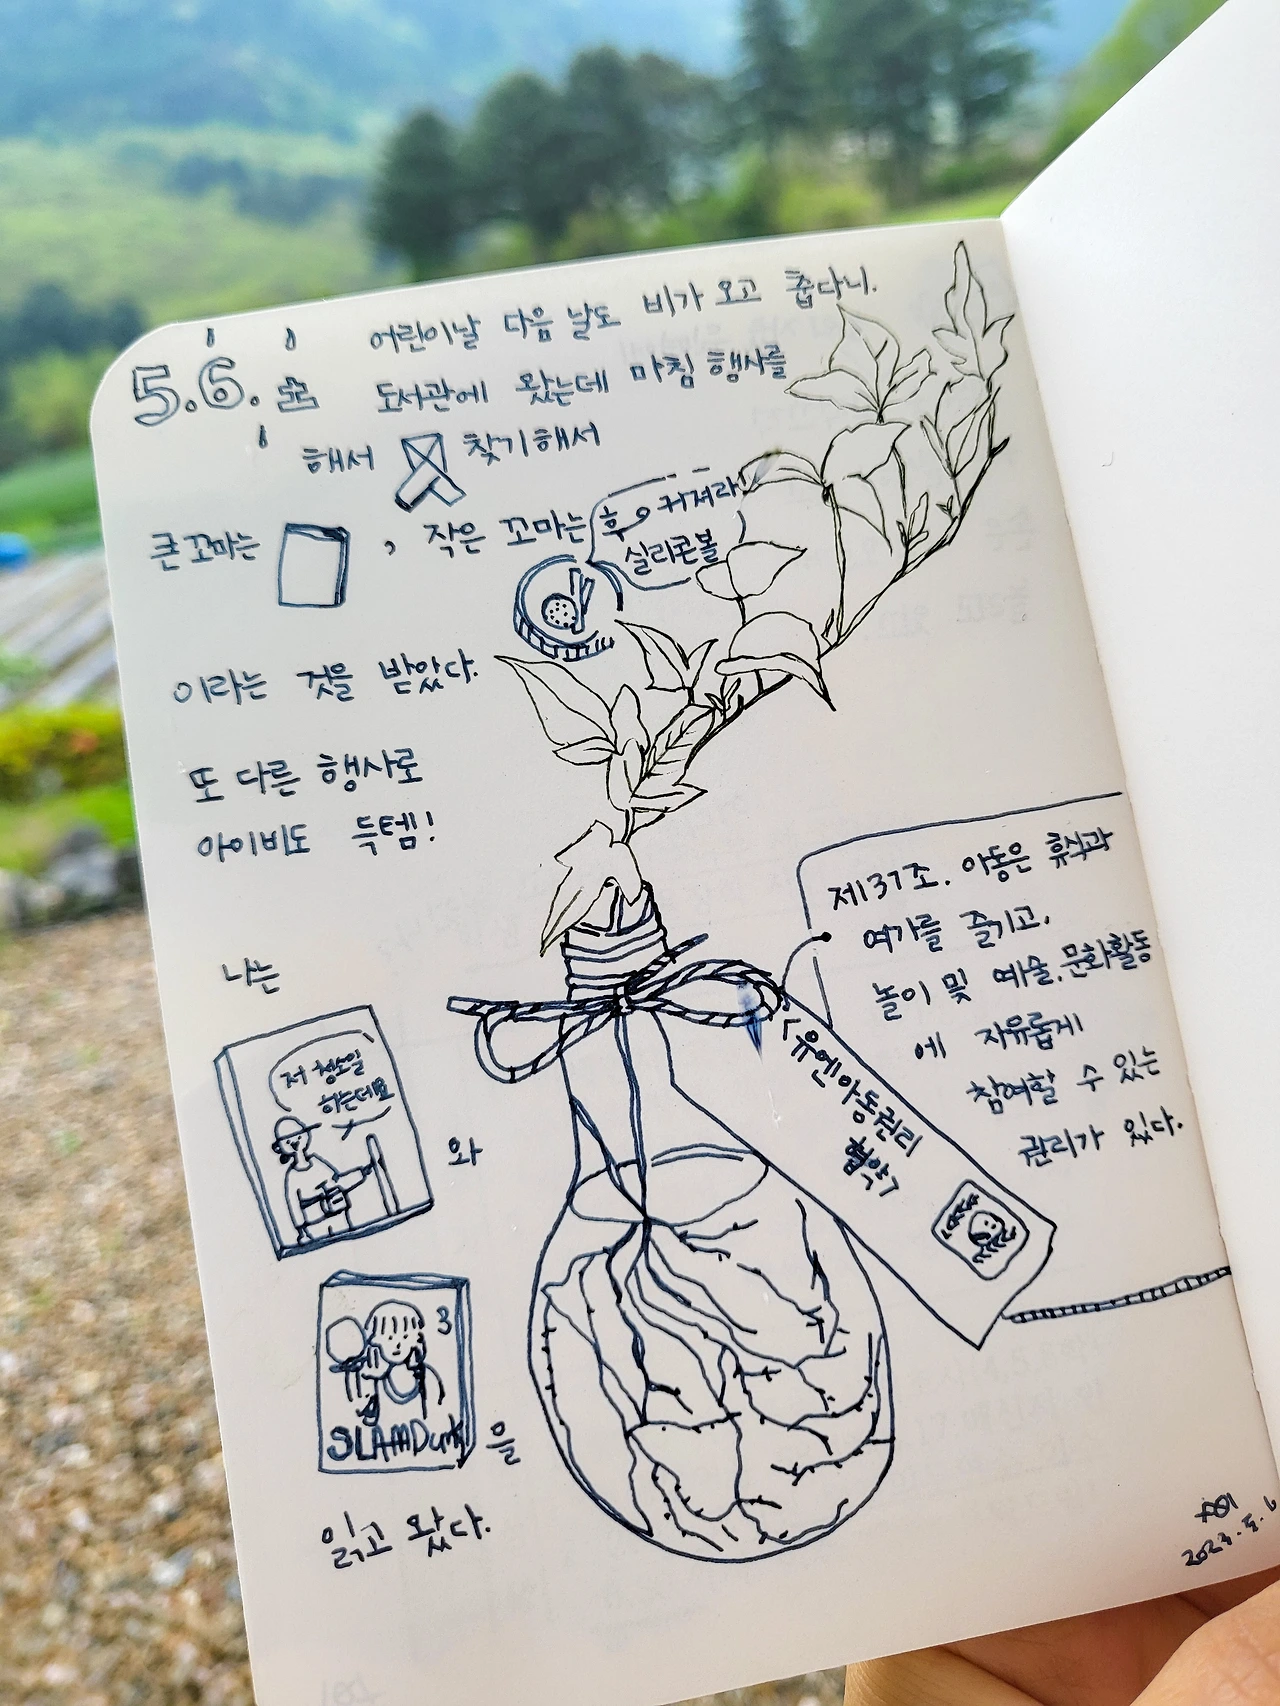 어린이날 다음 날도 비가 오고 춥다니.
5.6. 토 도서관에 왔는데 마침 행사를
해서 찾기해서
큰꼬마는 , 작은 꼬마는
후 커져라!
실리콘볼
이라는 것을 받았다.
또 다른 행사로
아이비도 득템!
제137조. 아동은 휴식과
여가를 즐기고,
놀이 및 예술, 문화활동
에 자유롭게
참여할 수 있는
권리가 있다.
<유엔아동권리
협약>
나는
저 청소일
하는데요
와
3
SLAMDunk
을
읽고 왔다.
2023.5.6